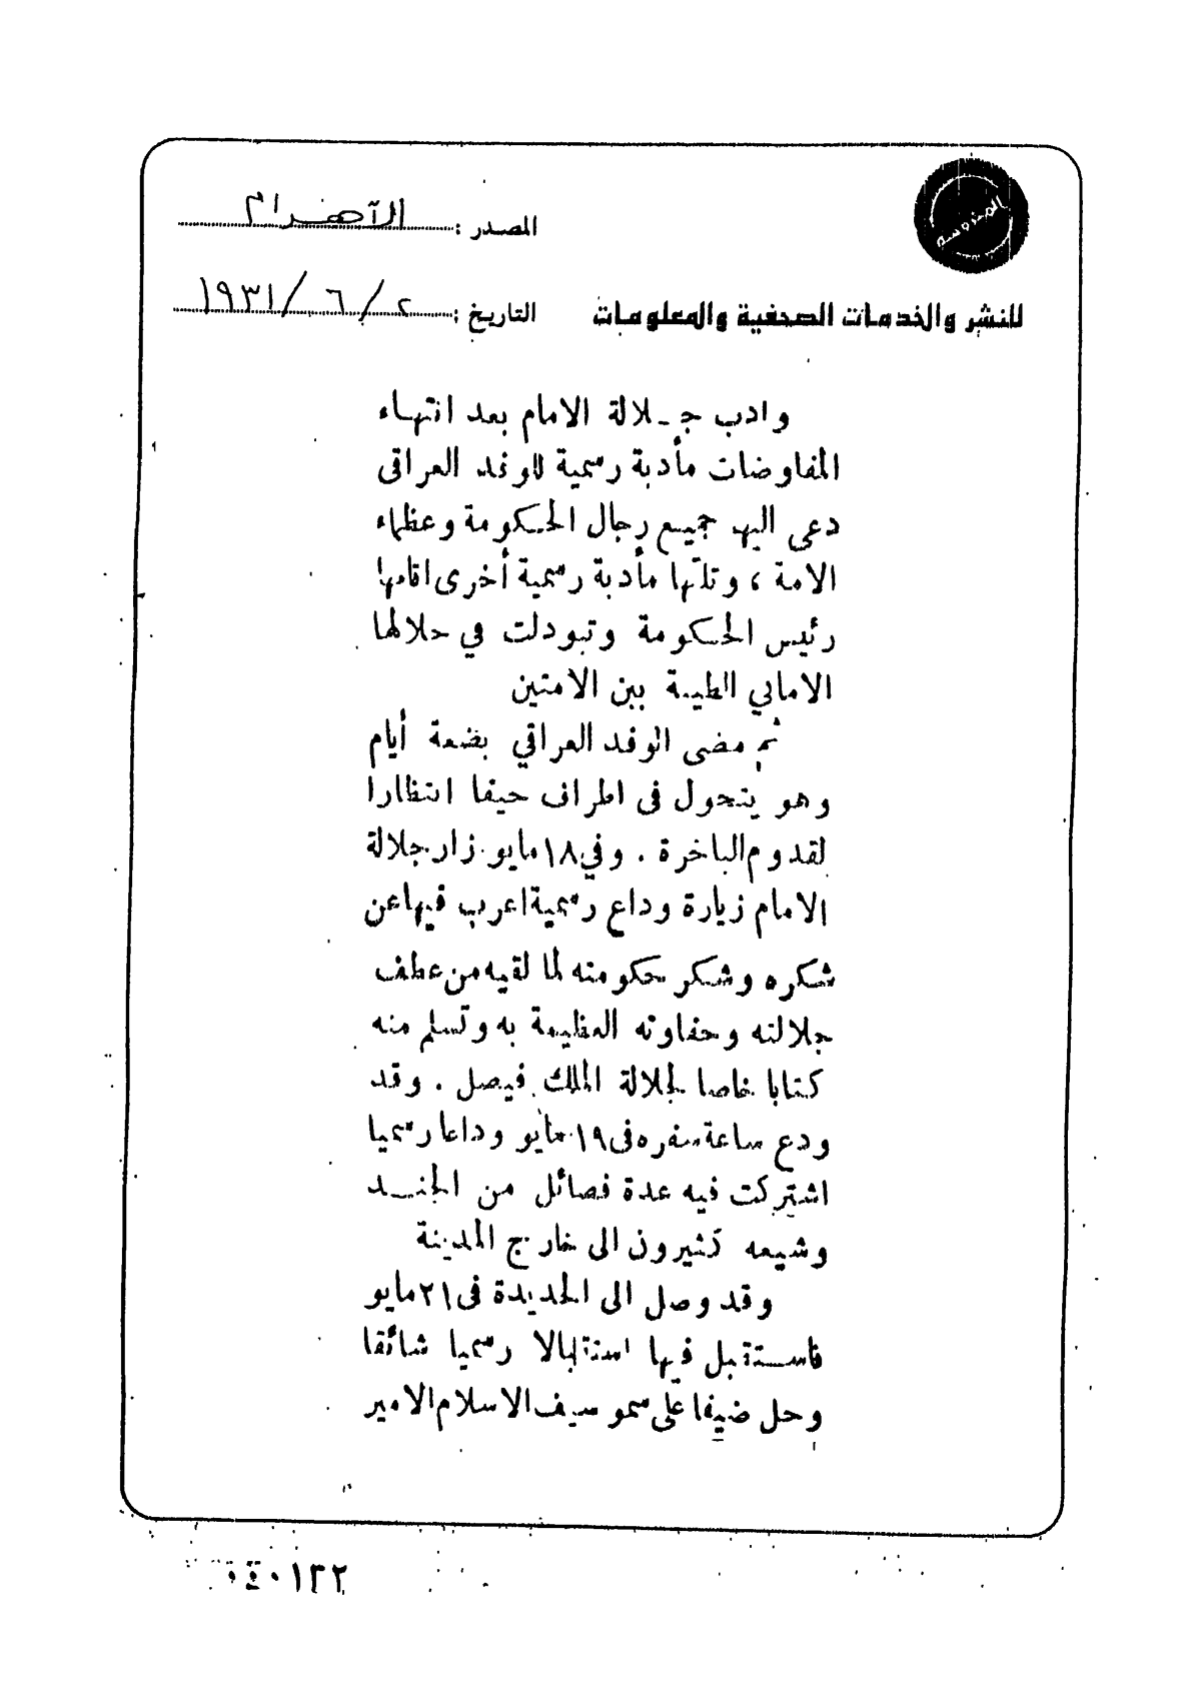 المحروسة
المصدر : الأهرام
للنشر والخدمات الصحفية والمعلومات
التاريخ : ٢ / ٦ / ١٩٣١
وادب جـلالة الامام بعد انتهاء
المفاوضات مأدبة رسمية للوفد العراقى
دعى اليها جميع رجال الحكومة وعظماء
الامة ، وتلتها مأدبة رسمية أخرى اقامها
رئيس الحكومة وتبودلت في خلالها
الاماني الطيبة بين الامتين
ثم مضى الوفد العراقي بضعة أيام
وهو يتجول فى اطراف حيفا انتظارا
لقدوم الباخرة . وفي ١٨ مايو زار جلالة
الامام زيارة وداع رسمية اعرب فيها عن
شكره وشكر حكومته لما لقيه من عطف
جلالته وحفاوته العظيمة به وتسلم منه
كتابا خاصا لجلالة الملك فيصل . وقد
ودع ساعة سفره فى ١٩ مايو وداعا رسميا
اشتركت فيه عدة فصائل من الجنـد
وشيعه كثيرون الى خارج المدينة
وقد وصل الى الحديدة فى ٢١ مايو
فاستقبل فيها استقبالا رسميا شائقا
وحل ضيفا على سمو سيف الاسلام الامير